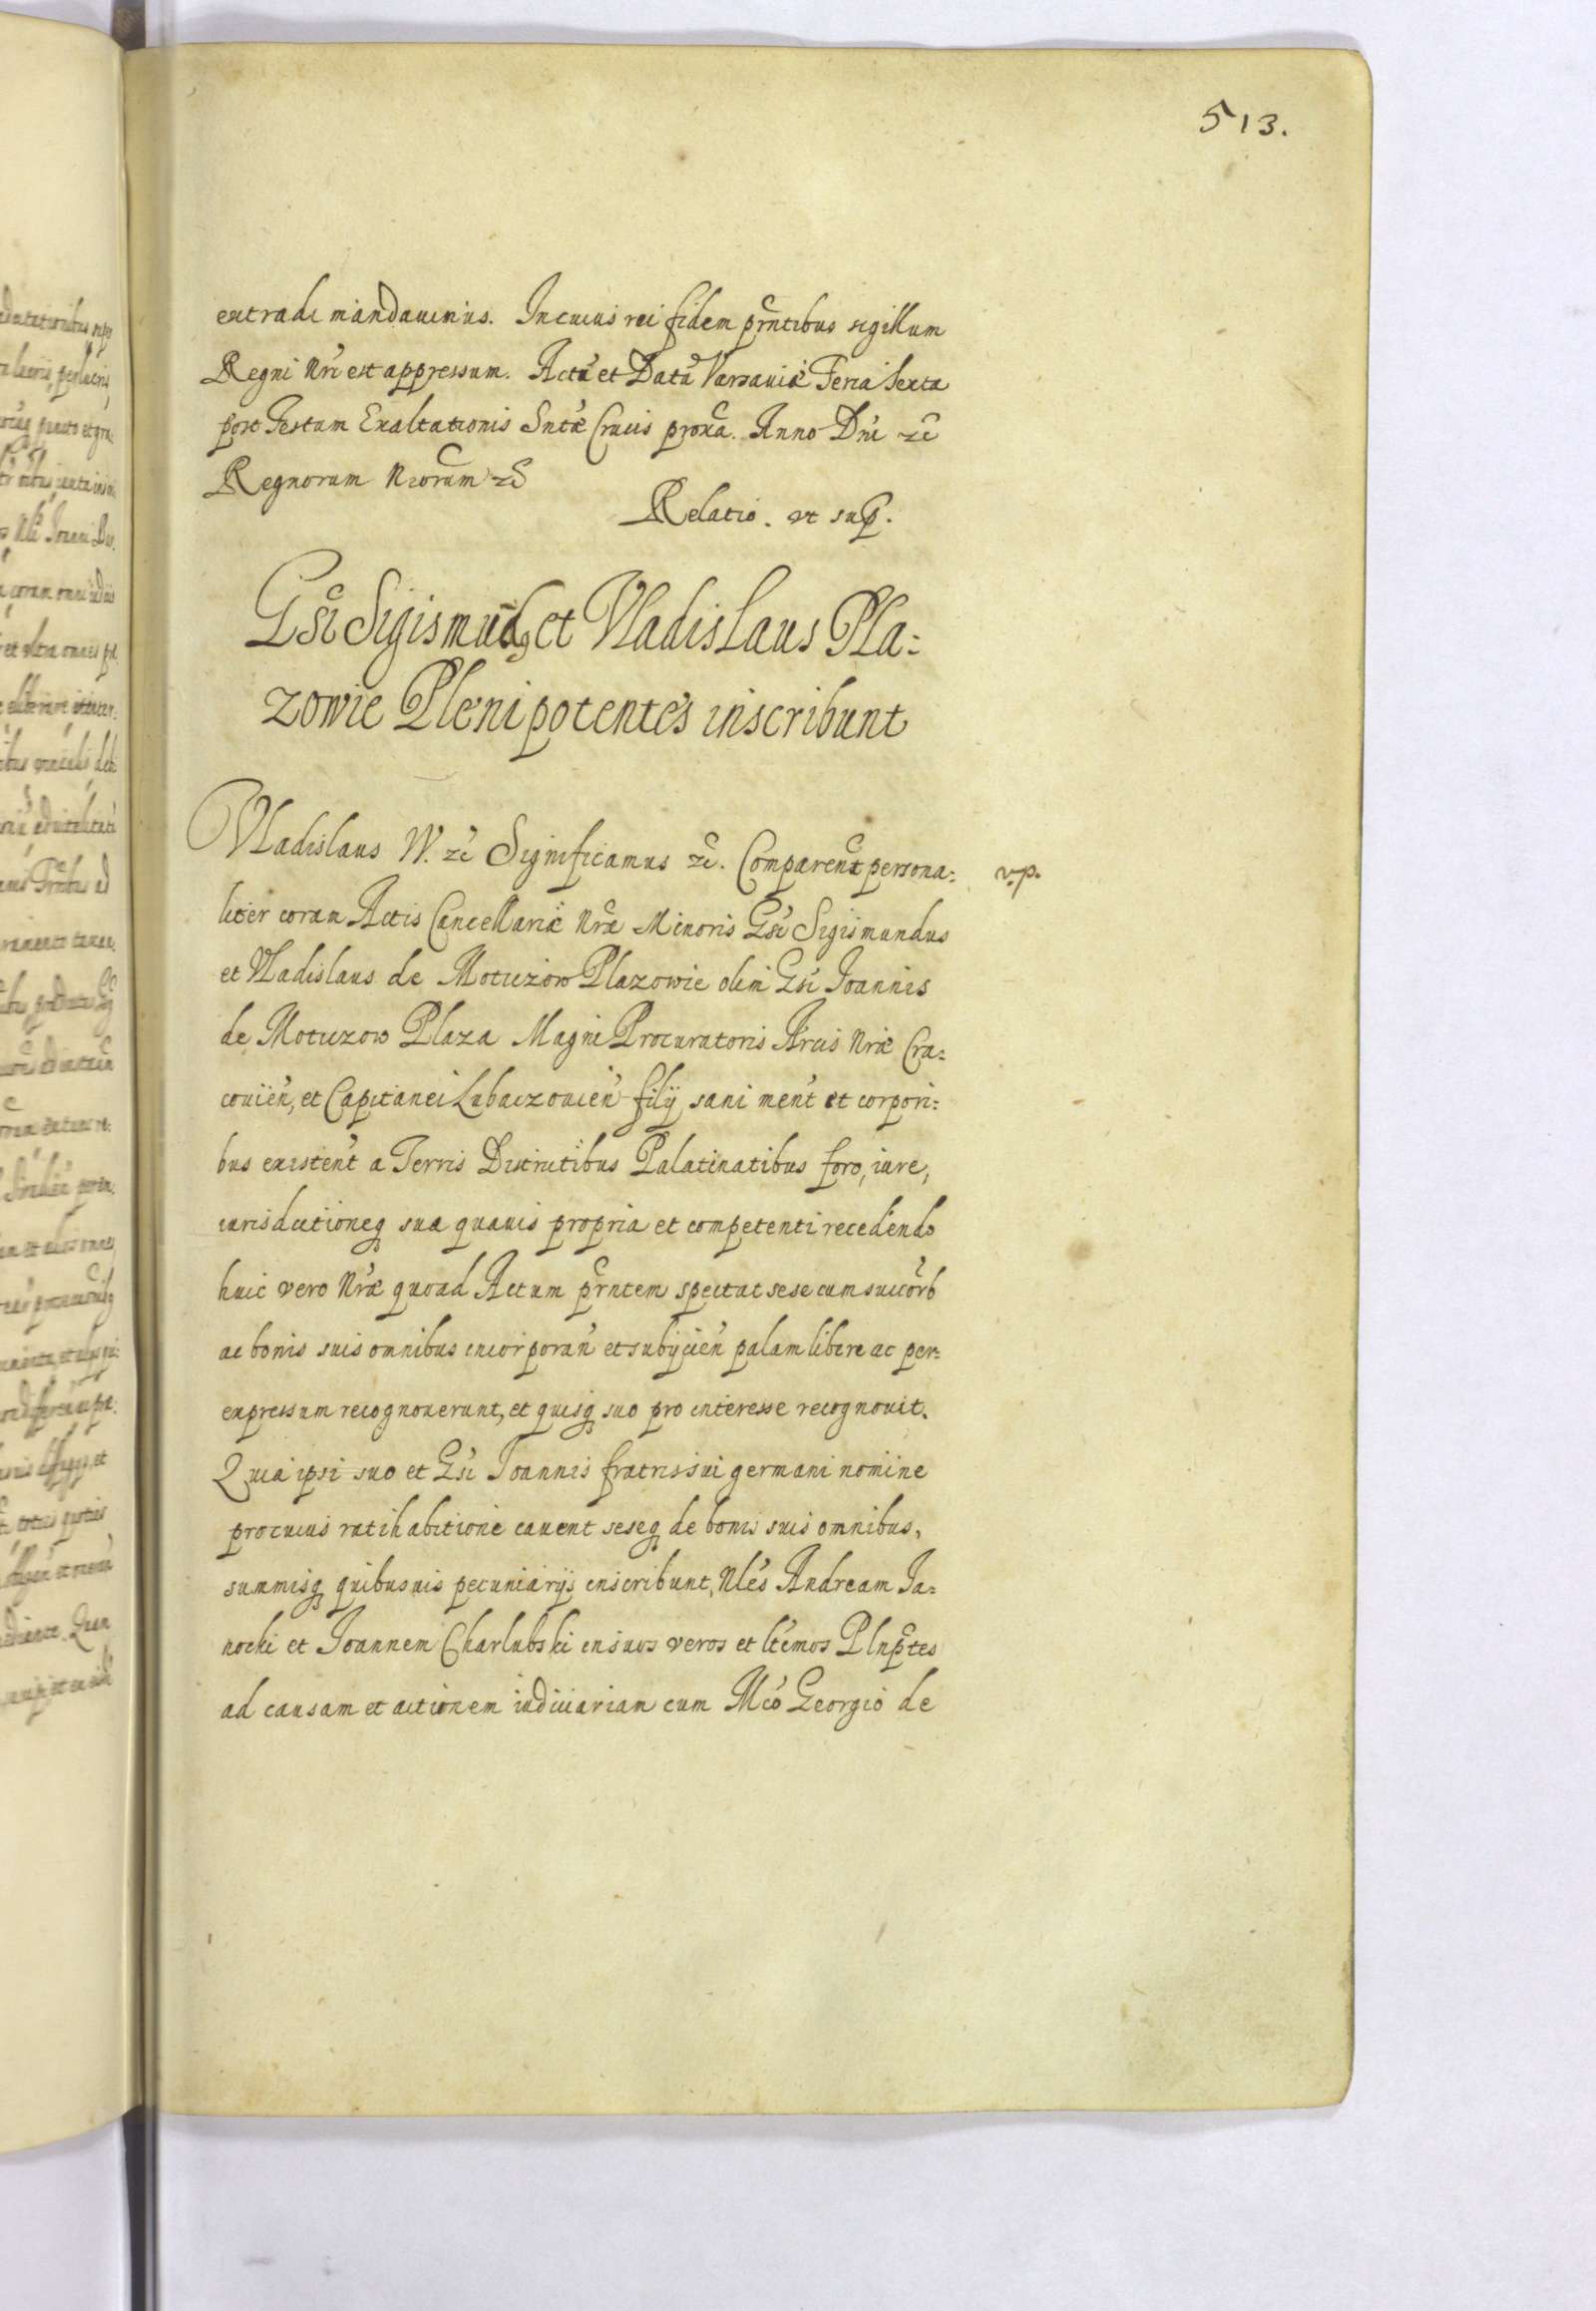 513.
extradi mandavimus. In cuius rei fidem prntibus sigillum
Regni Nri est appressum. Actũ et Datũ Varsaviæ Feria Sexta
post Festum Exaltationis Sntæ Crucis proxa. Anno Dni zc
Regnorum Nrorum zc
Relatio. ut sup.
Gsi Sigismudg et Vladislaus Pla:
zowie Plenipotentes inscribunt
Vladislaus IV. zc Significamus zc. Comparent persona:
v.p.
liter coram Actis Cancellariæ Nræ Minoris Gsi Sigismundus
et Vladislaus de Motuzow Plazowie olim Gsi Joannis
de Motuzow Plaza Magni Procuratoris Arcis Nræ Cra:
covien, et Capitanei Lubaczovien filij sani ment et corpori:
bus existent a Terris Districtibus Palatinatibus foro, iure,
iurisdictioneq sua quavis propria et competenti recedendo
huic vero Nræ quoad Actum prntem spectat sese cum succorb
ac bonis suis omnibus incorporan et subijcien palam libere ac per:
expressum recognoverunt, et quisq suo pro interesse recognovit.
Quia ipsi suo et Gsi Joannis fratris sui germani nomine
pro cuius ratihabitione cavent seseq de bonis suis omnibus,
summisq quibusvis pecuniarijs inscribunt, Nles Andream Ja:
nocki et Joannem Charlubski in suos veros et ltemos Plnptes
ad causam et actionem iudiciariam cum Mco Georgio de